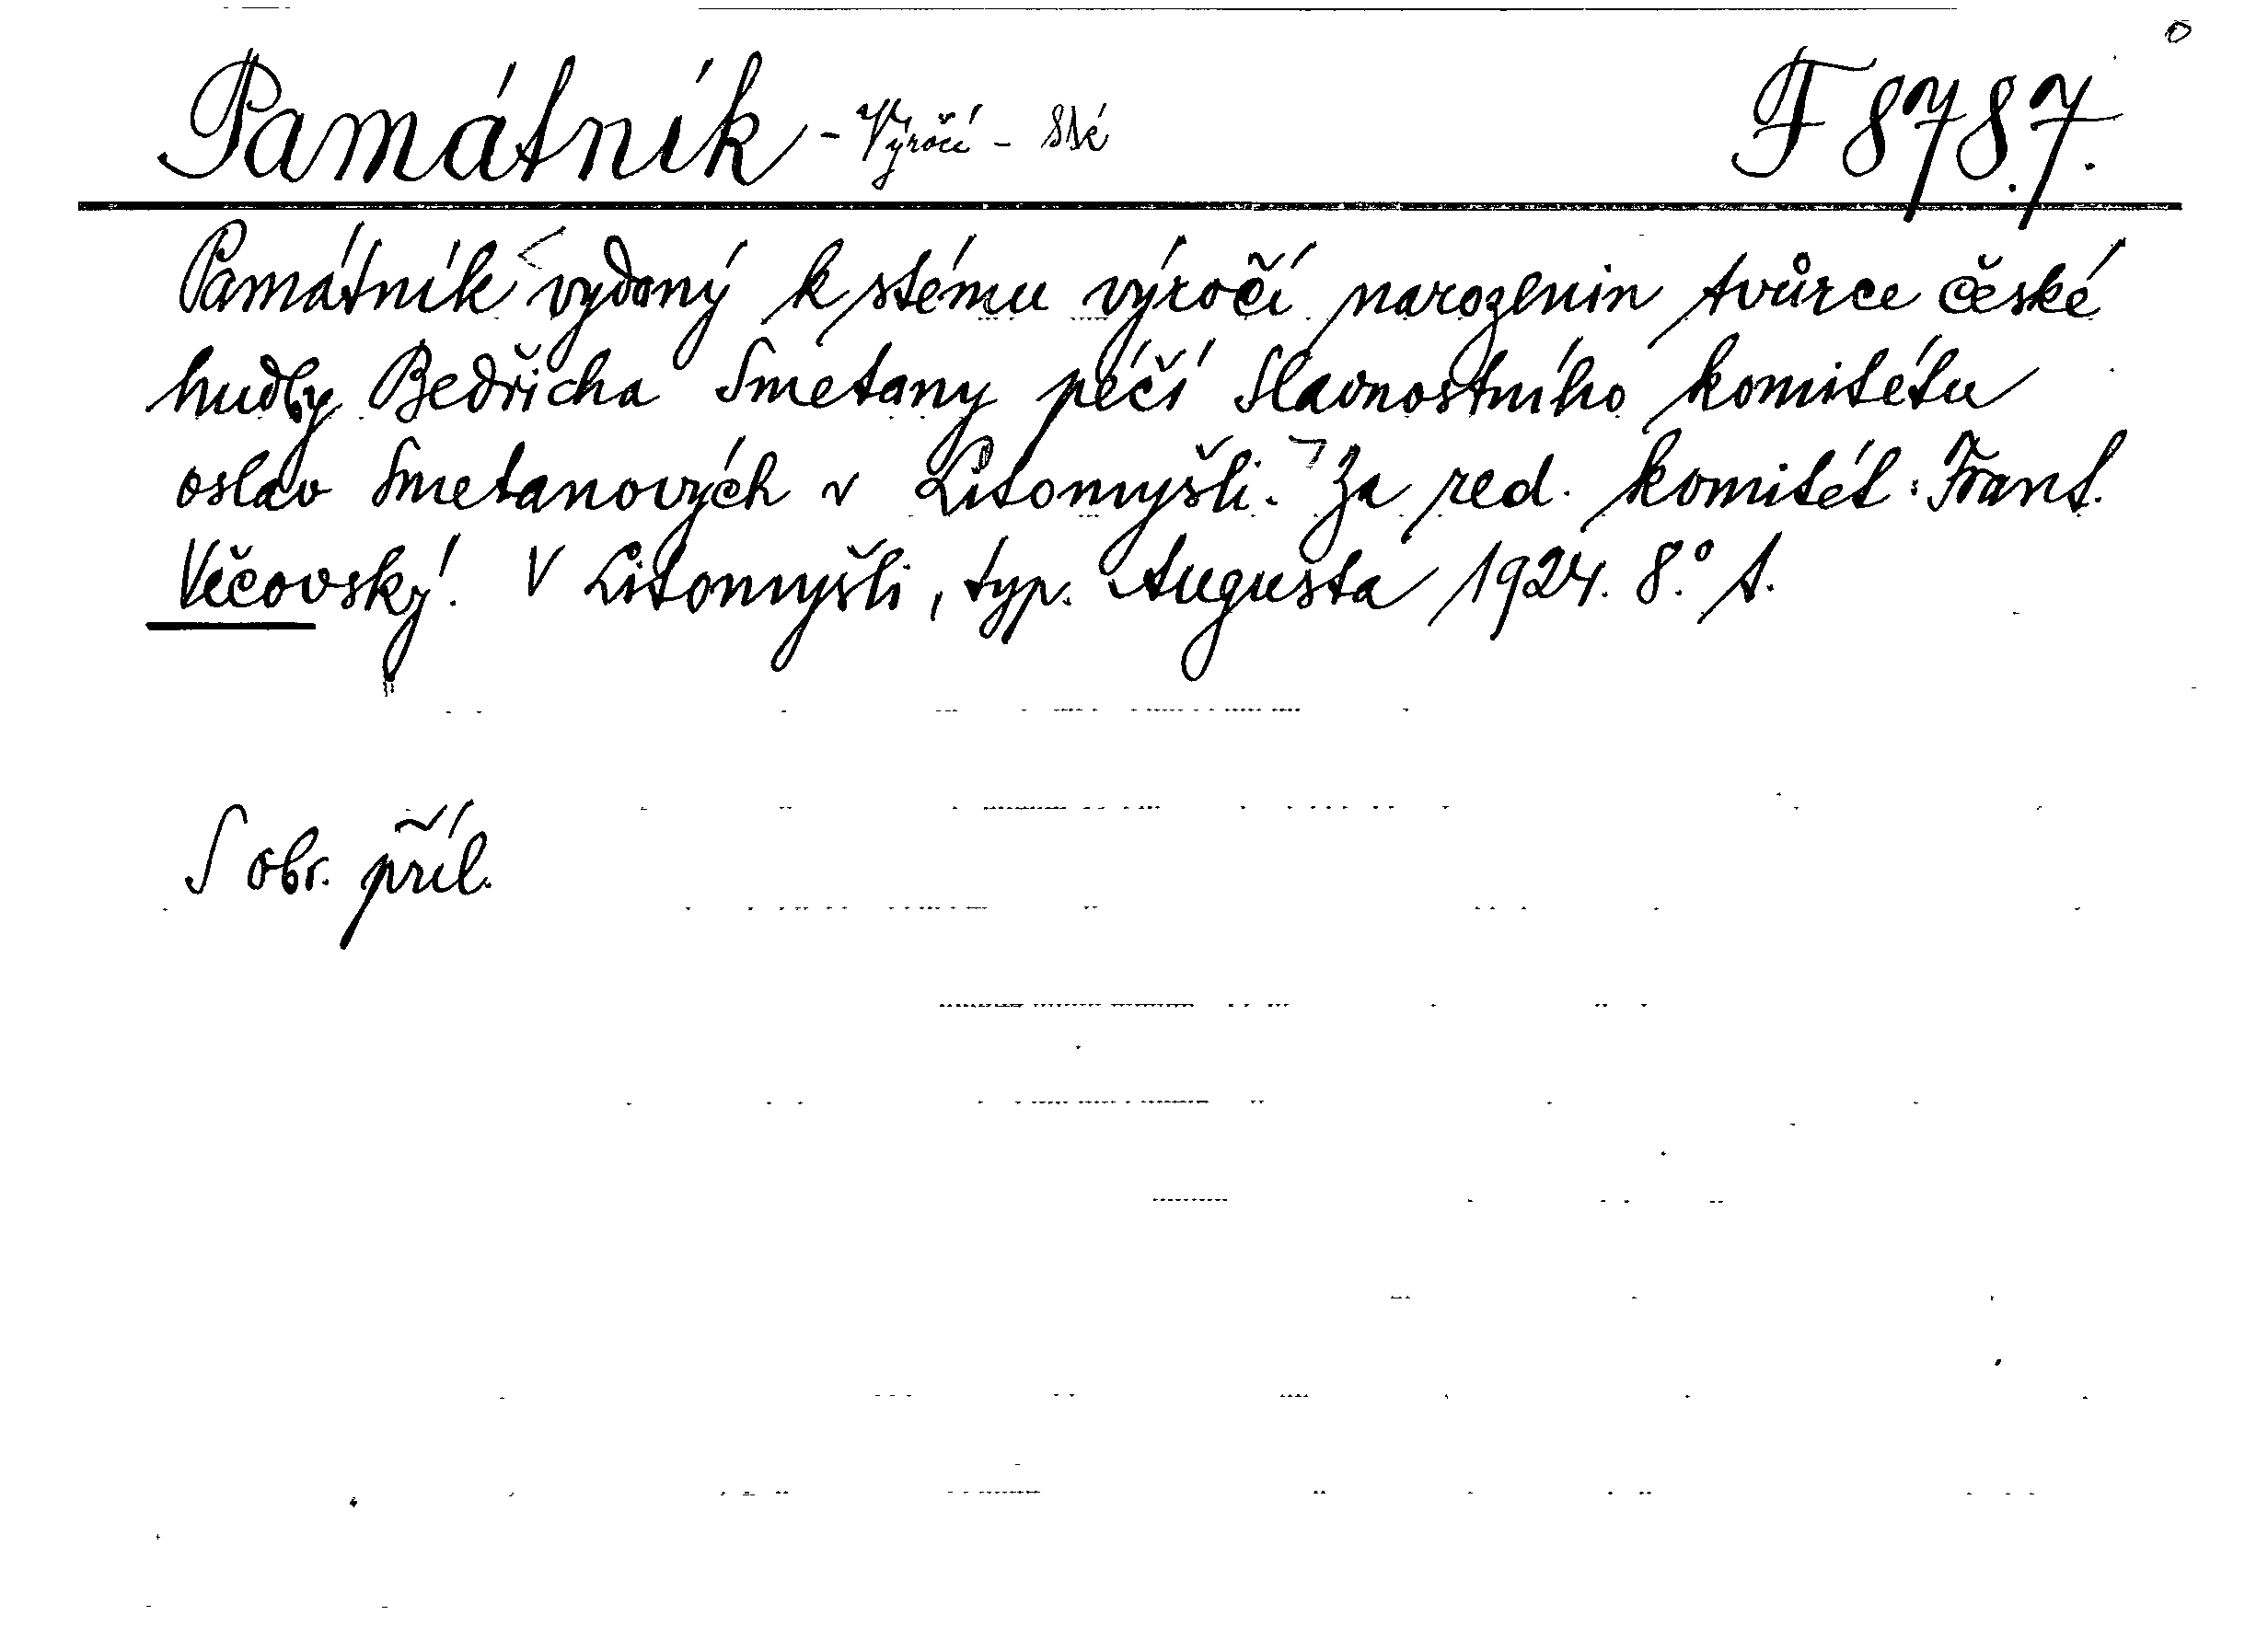 Památník - Výročí - sté F 8787.
Památník vydaný k stému výročí narozenin tvůrce české
hudby Bedřicha Smetany péčí Slavnostního komitétu
oslav Smetanových v Litomyšli. Za red. komitét: Frant.
Věčovský. V Litomyšli, typ. Augusta 1924. 8.° A.
S obr. příl.